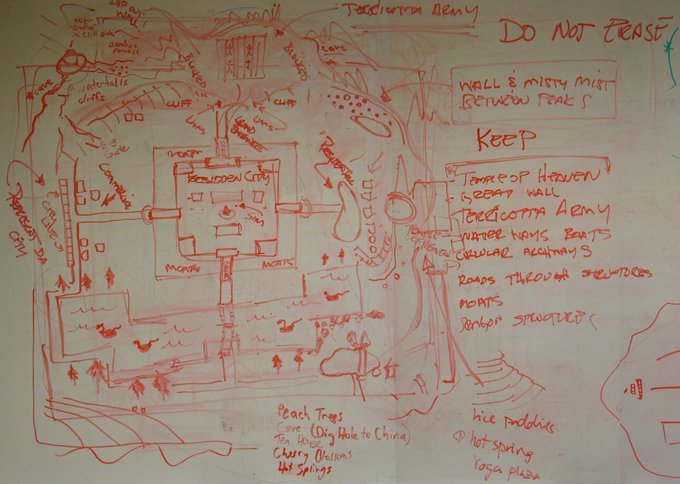 TERRICOTTA ARMY
DO NOT ERASE
WALL
bamboo forest
CAVE
CAVE
BLOCKED
BLOCKED
waterfalls
cliffs
CLIFF
CLIFF
WALL & MISTY MIST
BETWEEN PEAKS
KEEP
TEMPLE OF HEAVEN
GREAT WALL
TERRICOTTA ARMY
WATER WAYS BOATS
CIRCULAR ARCHWAYS
ROADS THROUGH STRUCTURES
MOATS
MOAT
FORBIDDEN CITY
SIM
MOATS
MOATS
RESIDENTIAL
COMMERCIAL
CITY
Peach Trees
Cave (Dig Hole to China)
Tea House
Cherry Blossoms
Hot Springs
rice paddies
hot spring
Yoga plaza